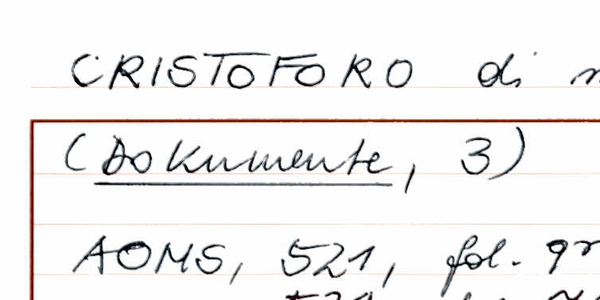 CRISTOFORO di
(Dokumente, 3)
AOMS, 521, fol. 9r